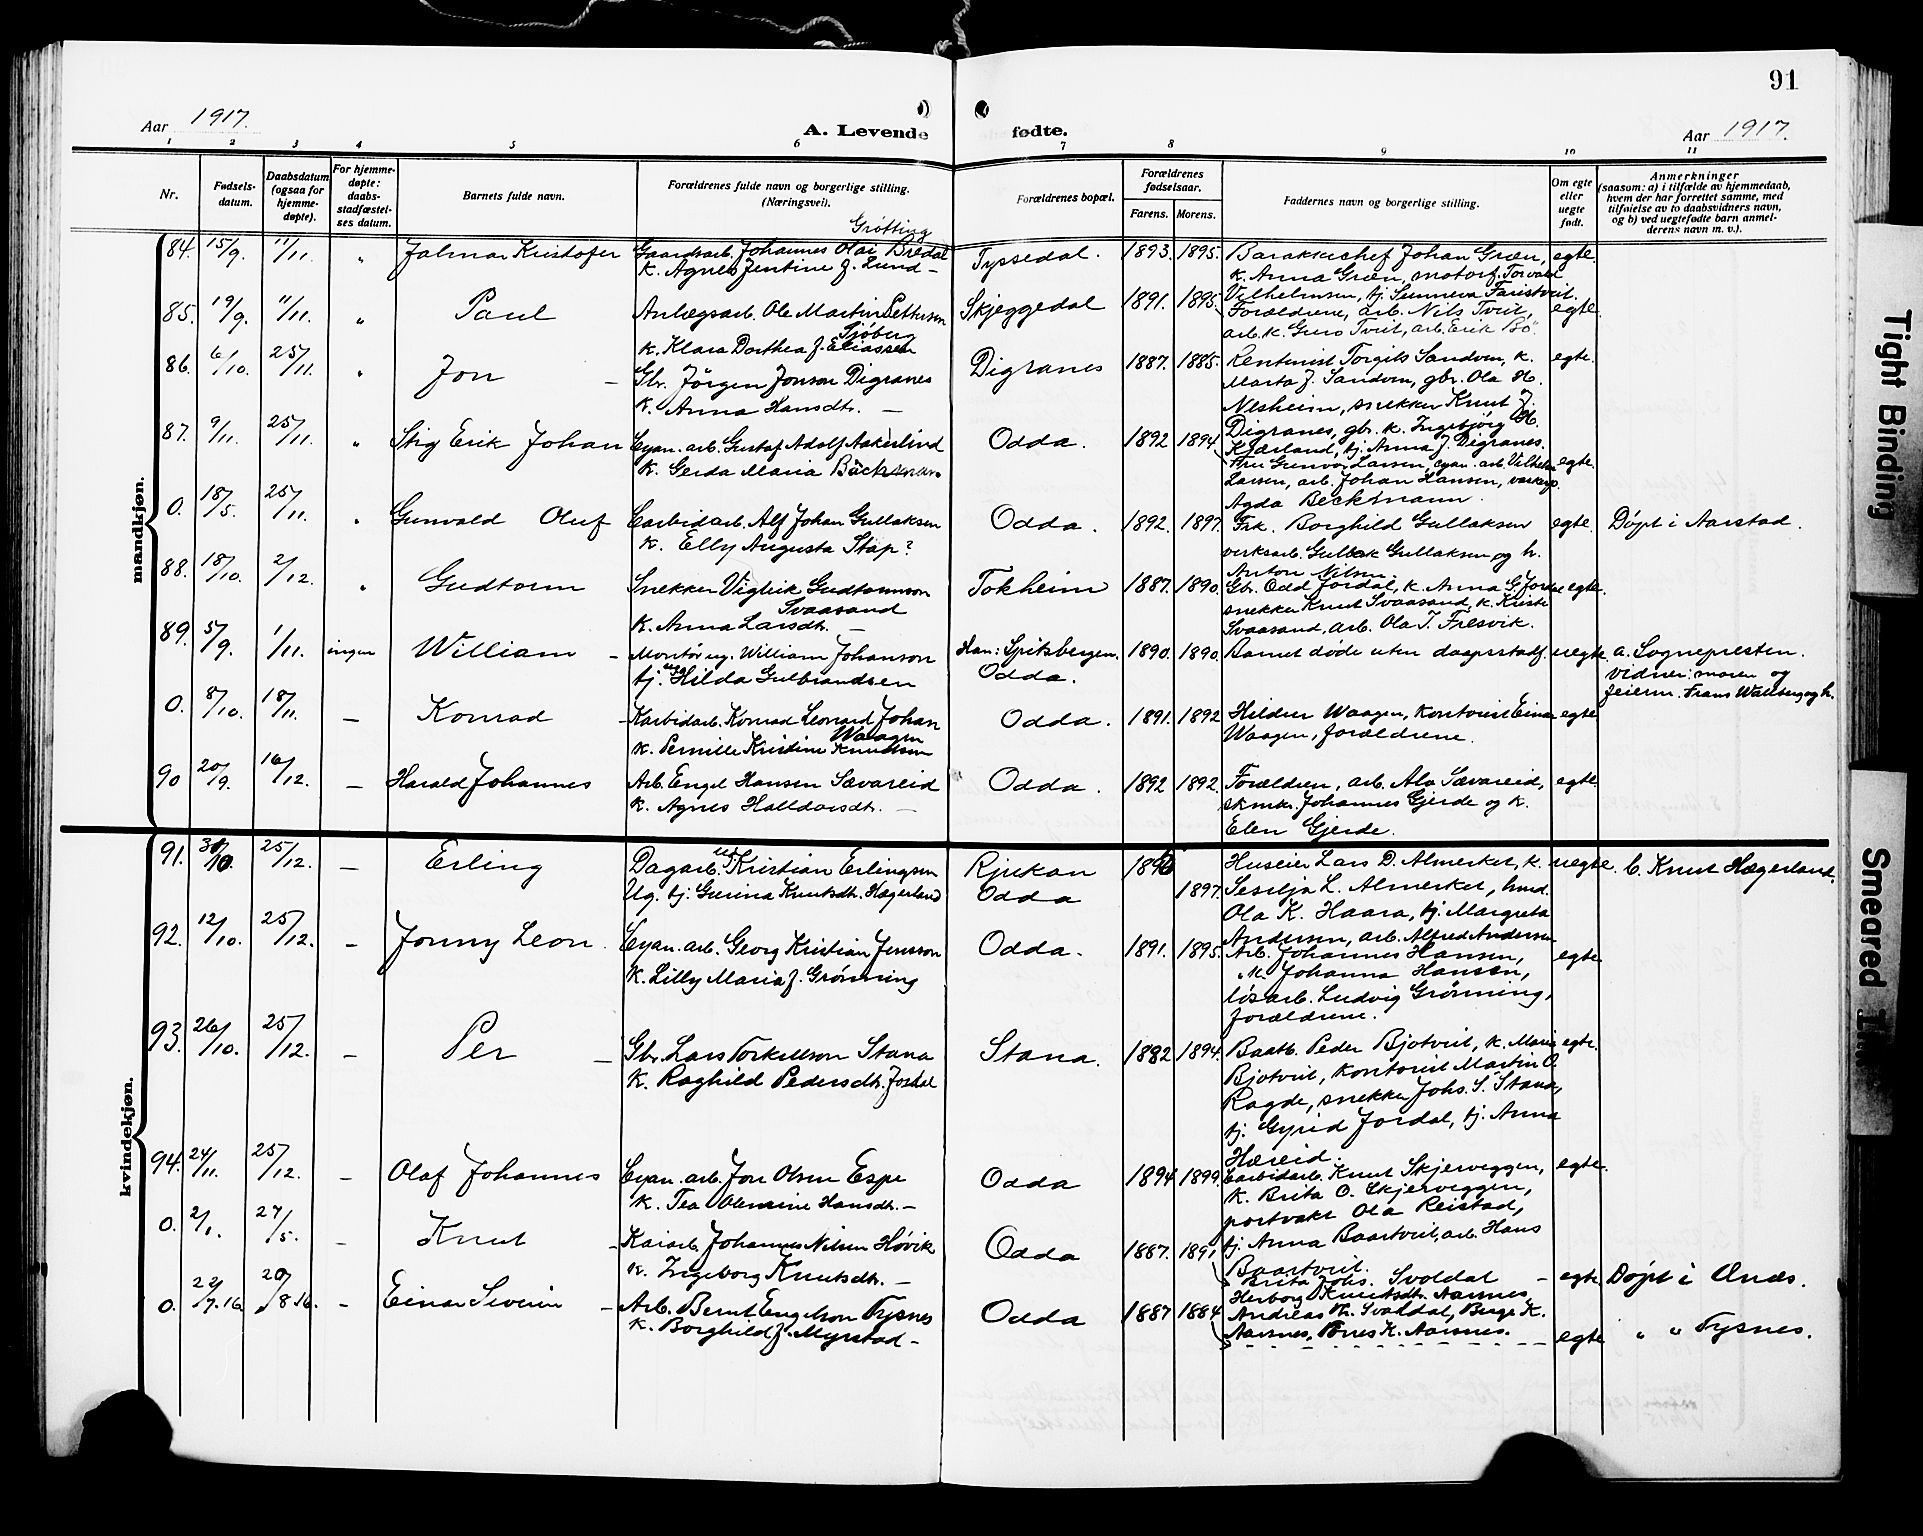 91
Aar 1917.
A. Levende fødte.
Aar 1917.
1 2 3 4 5 6 7 8 9 10 11
Nr.
Fødsels-
datum.
Daabsdatum
(ogsaa for
hjemme-
døpte).
For hjemme-
døpte:
daabs-
stadfæstel-
ses datum.
Barnets fulde navn.
Forældrenes fulde navn og borgerlige stilling.
(Næringsvei).
Forældrenes bopæl.
Forældrenes
fødselsaar.
Farens. Morens.
Faddernes navn og borgerlige stilling.
Om egte
eller
uegte
født.
Anmerkninger
(saasom: a) i tilfælde av hjemmedaab,
hvem der har forrettet samme, med
tilføielse av to daabsvidners navn,
og b) ved uegtefødte barn anmel-
derens navn m. v.).
mandkjøn.
84. 15/9. 11/11. " Jalmar Kristofer
Grøtting
Gaardsarb. Johannes Olai Bredal
k. Agnes Jentine f. Lund –
Tyssedal. 1893. 1895.
Barakkechef Johan Græn,
k. Anna Græn, motorf. Torvald
Vilhelmsen, tj. Sunneva Faristveit.
egte.
85. 19/9. 11/11. " Paul
Anlægsarb. Ole Martin Pettersen
Sjøberg
k. Klara Dorthea f. Eliassen
Skjeggedal 1891. 1895.
Forældrene, arb. Nils Tveit,
arb. k. Guro Tveit, arb. Erik Bö
egte.
86. 6/10. 25/11. " Jon –
Gbr. Jörgen Jonson Digranes
k. Anna Hansdtr. –
Digranes 1887. 1885.
Rentenist Torgils Sandven, k.
Marta J. Sandven, gbr. Ola H.
Nesheim, snekker Knut J.
Digranes, gbr. k. Ingebjörg H.
Kjærland, tj. Anna J. Digranes.
egte.
87. 9/11. 25/11. " Stig Erik Johan
Cyan. arb. Gustaf Adolf Aakerlind
k. Gerda Maria Bäckman
Odda. 1892 1894
Fru Gunvor Larsen, cyan. arb. Vilhelm
Larsen, arb. Johan Hansen,
Agda Beckmann.
egte.
0. 18/5. 25/11. " Gunvald Oluf
Carbidarb. Alf Johan Gullaksen
k. Elly Augusta Stap?
Odda. 1892. 1897.
Frk. Borghild Gullaksen
verksarb. Gullak Gullaksen og h.
Anton Nilsen
egte. Döpt i Aarstad.
88. 18/10. 2/12. " Gudtorm
Snekker Vigleik Gudtormson
Svaasand
k. Anna Larsdtr. –
Tokheim 1887. 1890.
Gbr. Odd Jordal, k. Anna G. Jordal
snekker Knut Svaasand, k. Kristi
Svaasand, arb. Ola T. Fresvik.
egte.
89. 5/9. 1/11. ingen William –
Montör ug. William Johanson
tj. ug. Hilda Gulbrandsen
Han: Spitsbergen.
Odda.
1890. 1890.
Barnet döde uten daapsstadf.
uegte. a. Sognepresten.
vidner: moren og
feierm. Frans Wallberg og h.
0. 8/10. 18/11. – Konrad
Karbidarb. Konrad Leonard Johan
Waagen
k. Pernille Kristine Knudsen
Odda. 1891. 1892
Hildur Waagen, kontorist Einar
Waagen, forældrene.
egte
90 20/9. 16/12. – Harald Johannes
Arb. Engel Hansen Sævareid
k. Agnes Halldorsdtr. –
Odda. 1892 1892.
Forældren, arb. Ala Sævareid,
skmkr. Johannes Gjerde og k.
Elen Gjerde.
egte.
kvindekjøn.
91. 30/10. 25/12. – Erling
Dagarb. ug. Kristian Erlingsen
Ug. tj. Gurina Knutsdtr. Hægerland
Rjukan
Odda
1896
1897.
Huseier Lars D. Almerket, k.
Sesilja L. Almerket, hmd.
Ola K. Haara, tj. Margreta
Andersen, arb. Alfred Andersen
uegte. b. Knut Hægerland.
92. 12/10. 25/12. – Jonny Leon.
Cyan. arb. Georg Kristian Jensson
k. Lilly Maria f. Grönning
Odda. 1891. 1895.
Arb. Johannes Hansen,
" k. Johanna Hansen,
lösarb. Ludvig Grönning,
forældrene.
egte.
93. 26/10. 25/12. – Per –
Gbr. Lars Torkellson Stana
k. Raghild Pedersdtr. Jordal
Stana. 1882 1894.
Baatb. Peder Bjotveit, k. Maria
Bjotveit, kontorist Martin O.
Ragde, snekker Johs. S. Stana,
tj. Gyrid Jordal, tj. Anna
Hæreid.
egte.
94. 24/11. 25/12. – Olaf Johannes
Cyan. arb. Jon Olsen Espe
k. Tea Olenrine Hansdtr. –
Odda 1894 1899.
Carbidarb. Knut Skjerveggen,
k. Brita O. Skjerveggen,
portvakt Ola Reistad,
tj. Anna Baartveit, arb. Hans
Baartveit.
egte.
0. 2/1. 27/5. – Knut –
Kaiarb. Johannes Nilsen Hövik
k. Ingeborg Knutsdtr. –
Odda 1887. 1891
Brita Johs. Svoldal –
Herborg Knutsdtr. Aarsnes,
Andreas Th. Svoldal, Berge K.
Aarsnes, Tomes K. Aarsnes.
egte. Döpt i Ænæs.
0. 22/7. 16. 20/8. 16. – Einar Severin –
Arb. Bernt Engelson Tysnes
k. Borghild f. Myrstad –
Odda 1887 1884
egte " " Tysnes.
Tight Binding
Smeared